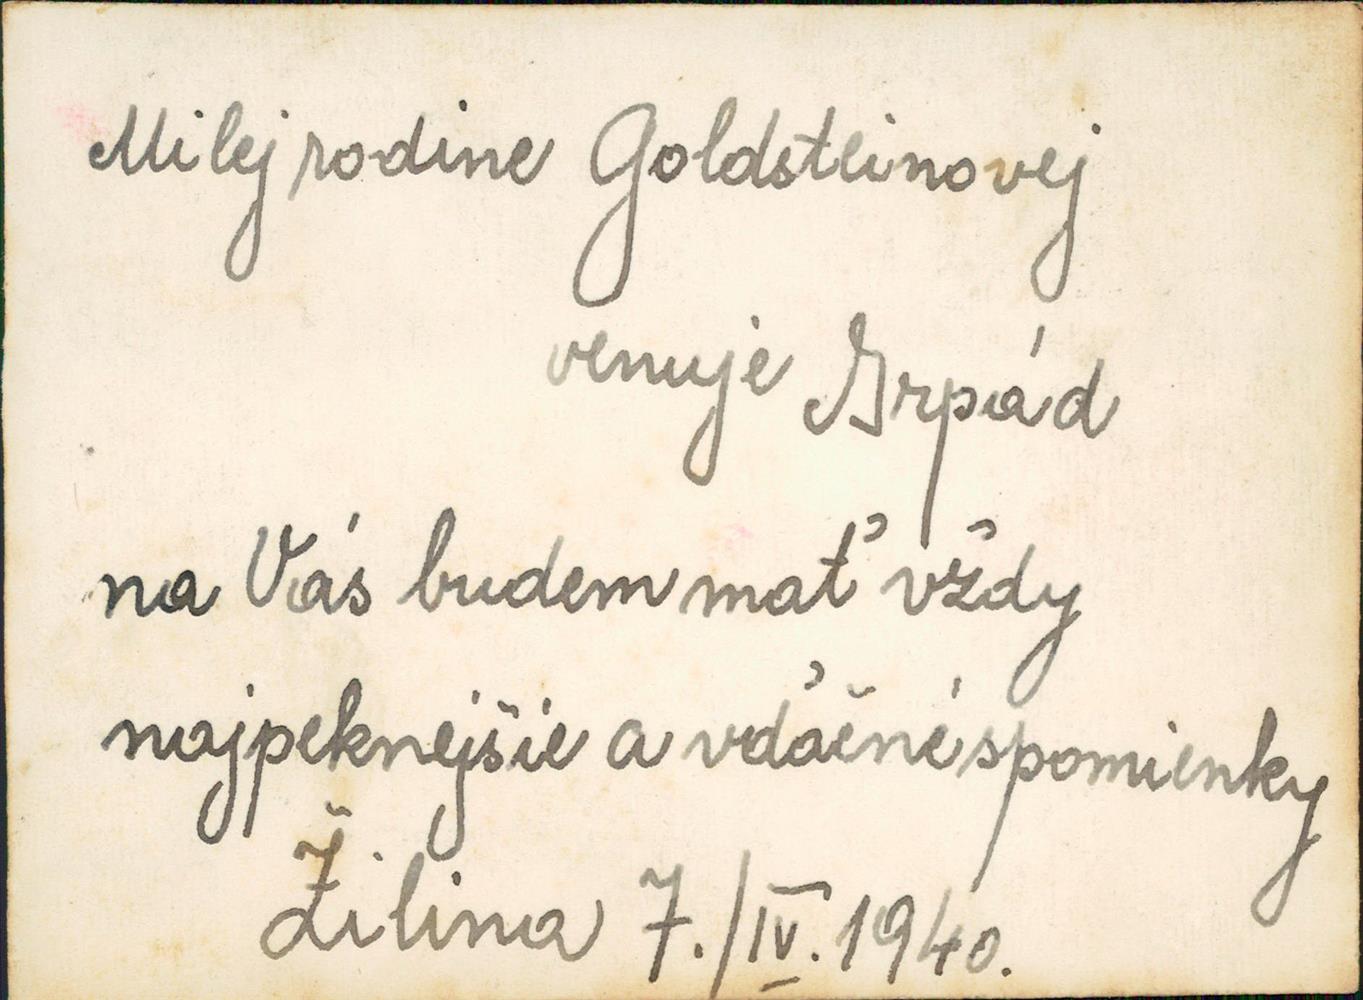 Milej rodine Goldsteinovej
venuje Arpád
na Vás budem mať vždy
najpeknejšie a vďačné spomienky
Žilina 7./IV. 1940.